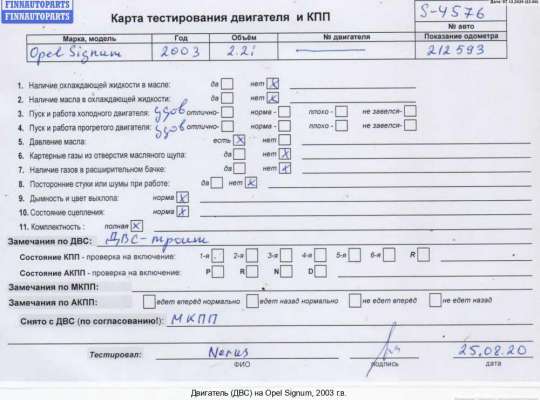 FINNAUTOPARTS
FINNAUTOPARTS
Карта тестирования двигателя и КПП
S-4576
№ авто
Марка, модель Год Объём № двигателя Показание одометра
Opel Signum 2003 2.2i 212593
1. Наличие охлаждающей жидкости в масле: да нет x
2. Наличие масла в охлаждающей жидкости: да нет x
3. Пуск и работа холодного двигателя: удов отлично- норма - плохо - не завелся-
4. Пуск и работа прогретого двигателя: удов отлично- норма - плохо - не завелся-
5. Давление масла: есть x нет
6. Картерные газы из отверстия масляного щупа: да нет x
7. Наличие газов в расширительном бачке: да нет x
8. Посторонние стуки или шумы при работе: да нет x
9. Дымность и цвет выхлопа: норма x
10. Состояние сцепления: норма x
11. Комплектность : полная x
Замечания по ДВС: ДВС-троит
Состояние КПП - проверка на включение: 1-я 2-я 3-я 4-я 5-я 6-я R
Состояние АКПП - проверка на включение: P R N D
Замечания по МКПП:
Замечания по АКПП: едет вперёд нормально едет назад нормально не едет вперёд не едет назад
Снято с ДВС (по согласованию!): МКПП
Тестировал: 25.08.20
ФИО подпись дата
Двигатель (ДВС) на Opel Signum, 2003 г.в.